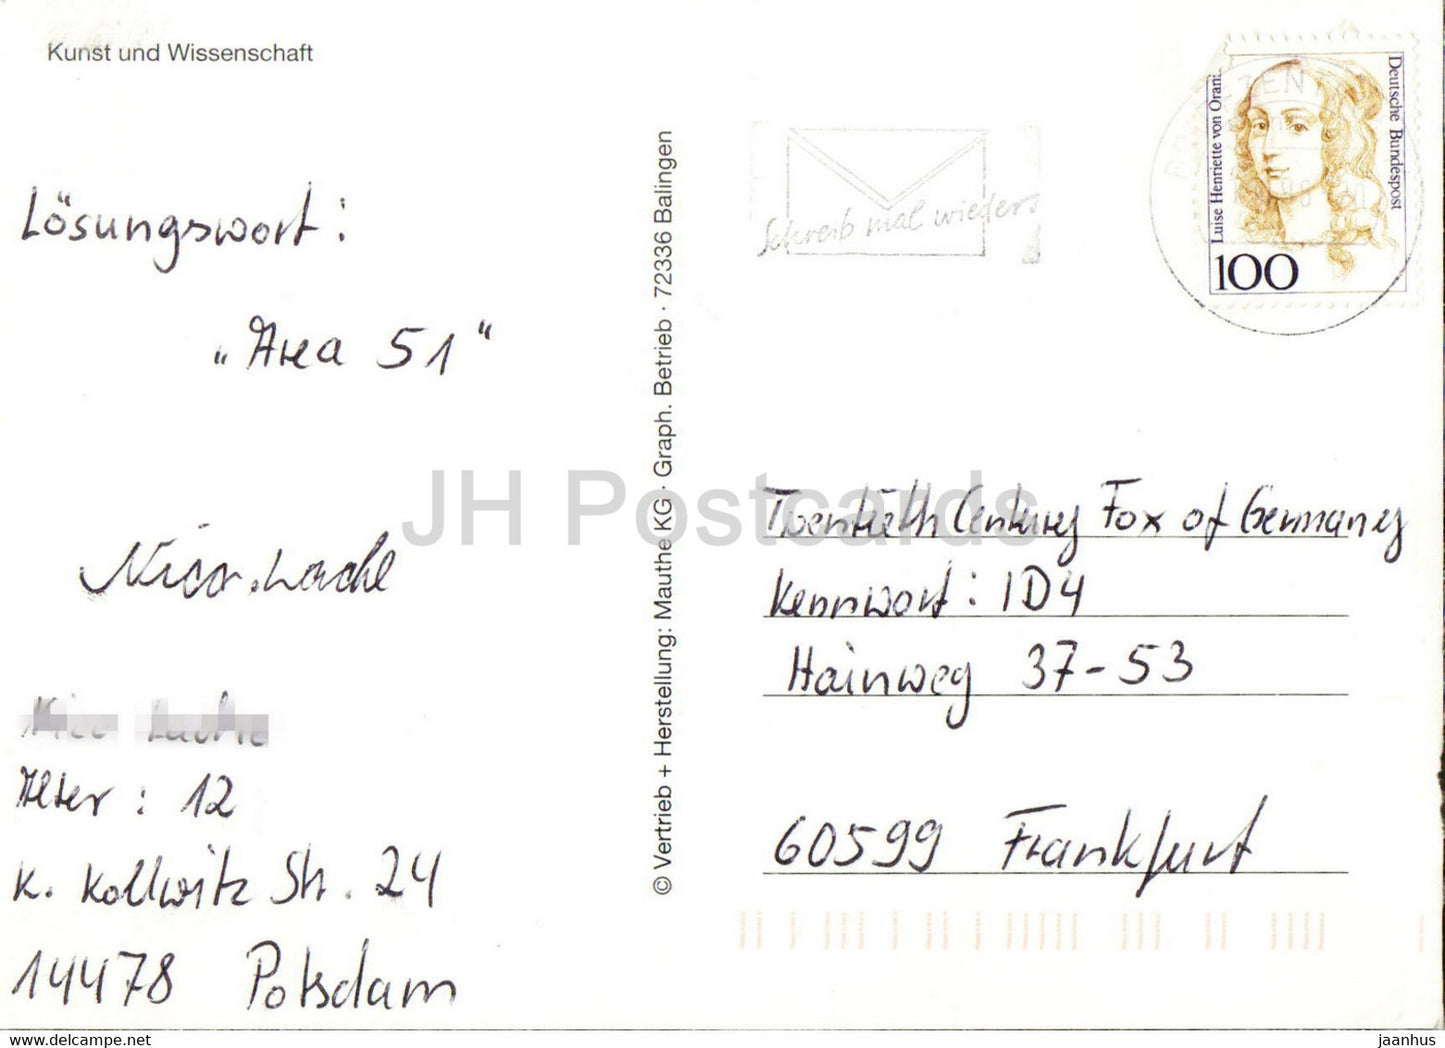 Kunst und Wissenschaft
Lösungswort:
„Area 51“
Nico Lache
Alter: 12
K. Kollwitz Str. 24
14478 Potsdam
© Vertrieb + Herstellung: Mauthe KG · Graph. Betrieb · 72336 Balingen
Schreib mal wieder
Luise Henriette von Orani
Deutsche Bundespost
100
Twentieth Century Fox of Germany
Kennwort: ID4
Hainweg 37-53
60599 Frankfurt
JH Postcards
https://www.delcampe.net
jaanhus